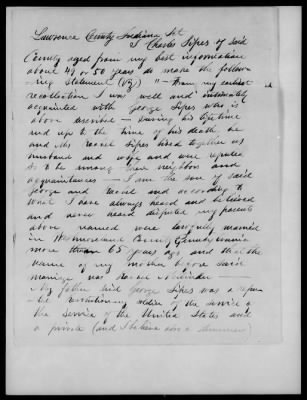 Lawrence County Indiana Sct
I Charles Sipes of said
County aged from my best information
about 49 or 50 years do make the follow-
ing statement (viz) "From my earliest
recollection I was well and intimately
acquainted with George Sipes who is
above described — during his life time
and up to the time of his death, he
and Mrs Sipes lived together as
husband and wife and were reputed
as to be among their neighbors and
acquaintances — I am the son of said
George and and according to
what I have always heard and believed
and never heard disputed my parents
above named were lawfully married
in County
more than 65 years ago and that the
name of my mother before said
marriage was
My father said George Sipes was a
Revolutionary soldier of the service of
the service of the United States and
a private (and I believe also a drummer)